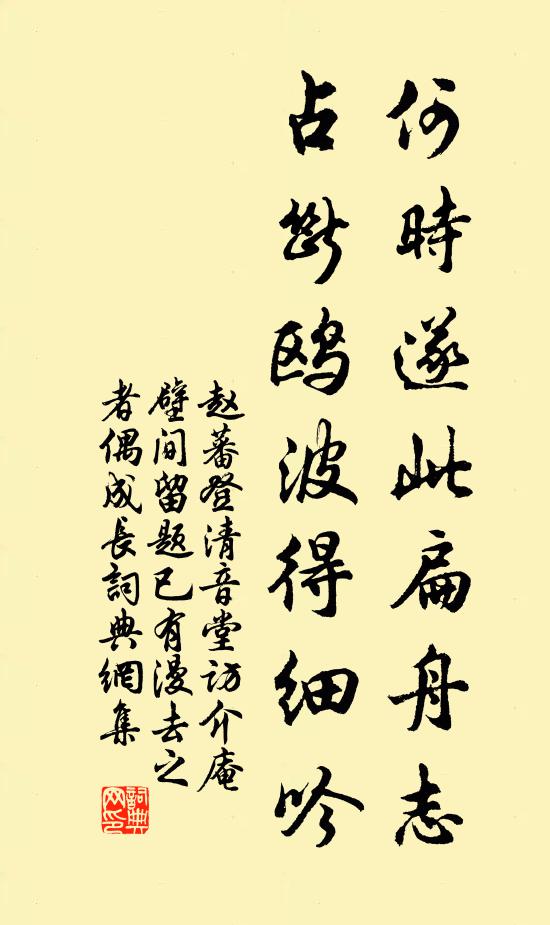 何時遂此扁舟志
占断鸥波得细吟
赵蕃登清音堂访介庵
壁间留题已有漫去之
者偶成长詞典網集
詞典
网印